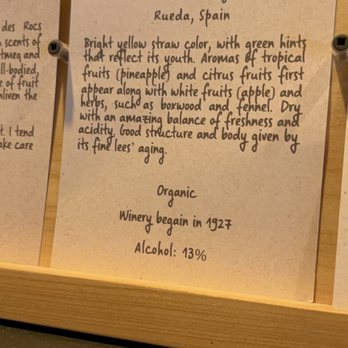 des Rocs
scents of
tmeg and
ll-bodied,
e of fruit
nliven the
t. I tend
ake care
Rueda, Spain
Bright yellow straw color, with green hints
that reflect its youth. Aromas of tropical
fruits (pineapple) and citrus fruits first
appear along with white fruits (apple) and
herbs, such as boxwood and fennel. Dry
with an amazing balance of freshness and
acidity. Good structure and body given by
its fine lees' aging.
Organic
Winery begain in 1927
Alcohol: 13%